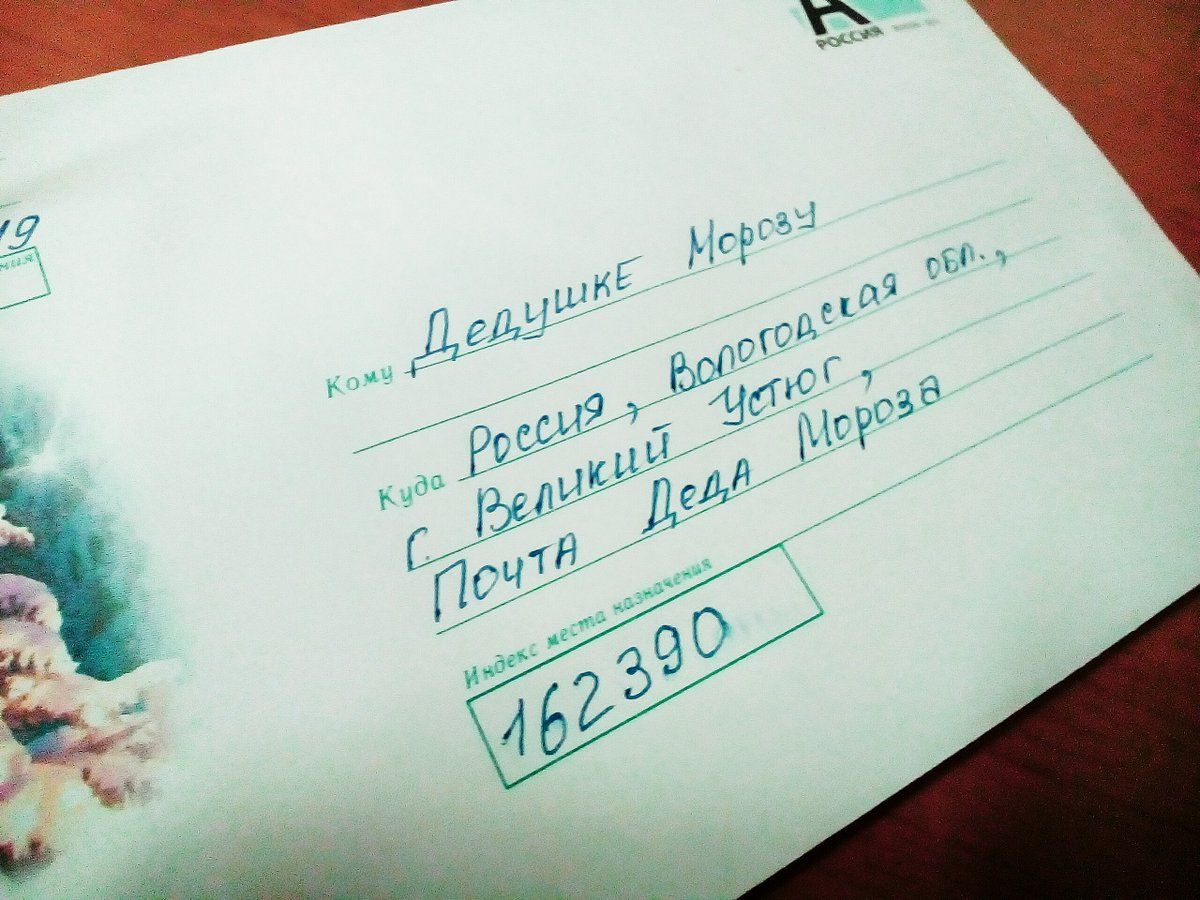 А
РОССИЯ
19
Кому Дедушке Морозу
Куда Россия, Вологодская обл.,
г. Великий Устюг,
Почта Деда Мороза
Индекс места назначения
162390